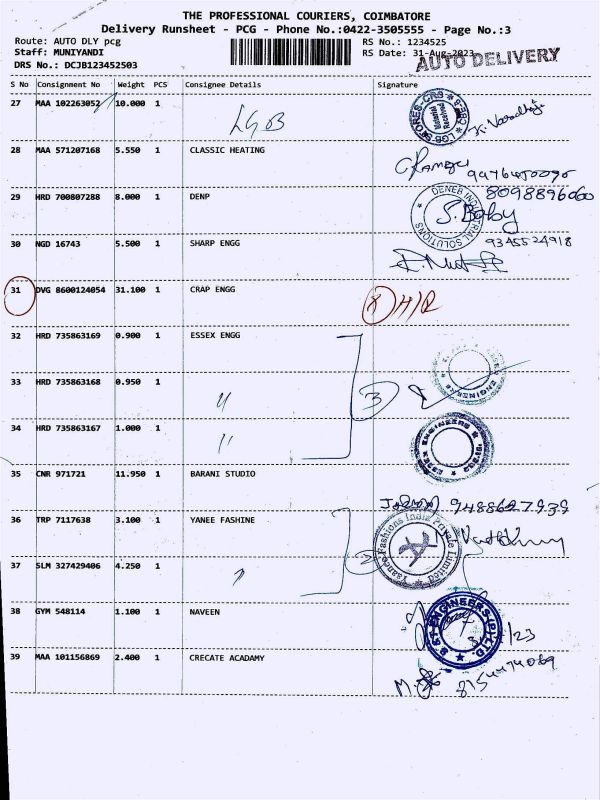 THE PROFESSIONAL COURIERS, COIMBATORE
Delivery Runsheet - PCG - Phone No.:0422-3505555 - Page No.:3
Route: AUTO DLY pcg RS No.: 1234525
Staff: MUNIYANDI RS Date: 31-Aug-2023
DRS No.: DCJB123452503 AUTO DELIVERY
S No Consignment No Weight PCS Consignee Details Signature
27 MAA 102263052 10.000 1 LGB
28 MAA 571207168 5.550 1 CLASSIC HEATING
29 HRD 700807288 8.000 1 DENP 8098896060
DENEB INDUSTRIAL SOLUTIONS
S. Baby
30 NGD 16743 5.500 1 SHARP ENGG 9345524918
31 DVG 8600124054 31.100 1 CRAP ENGG
32 HRD 735863169 0.900 1 ESSEX ENGG
33 HRD 735863168 0.950 1 〃 3
34 HRD 735863167 1.000 1 〃
ESSEX ENGINEERS
35 CNR 971721 11.950 1 BARANI STUDIO
9488627939
36 TRP 7117638 3.100 1 YANEE FASHINE
Fashions India Private Limited
37 SLM 327429406 4.250 1 〃
38 GYM 548114 1.100 1 NAVEEN
ENGINEERS (P) LTD.
39 MAA 101156869 2.400 1 CRECATE ACADAMY
8154474069